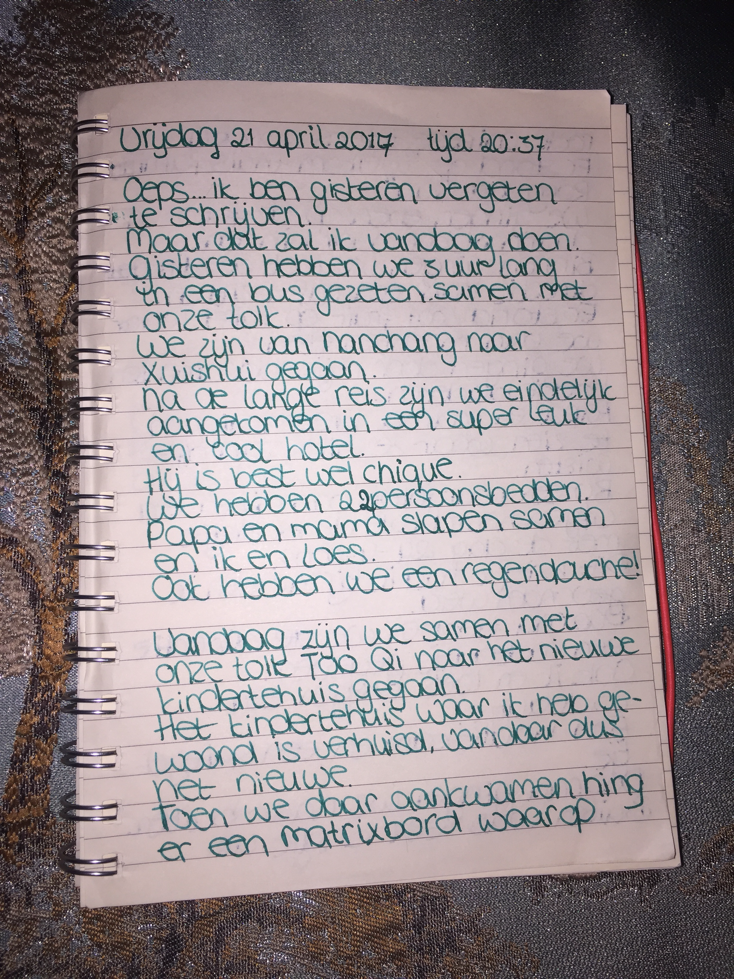 Vrijdag 21 april 2017 tijd 20:37
Oeps... ik ben gisteren vergeten
te schrijven.
Maar dat zal ik vandaag doen.
Gisteren hebben we 3 uur lang
in een bus gezeten samen met
onze tolk.
We zijn van nanchang naar
Xuishui gegaan.
Na de lange reis zijn we eindelijk
aangekomen in een super leuk
en cool hotel.
Hij is best wel chique.
We hebben 2 2persoonsbedden.
Papa en mama slapen samen
en ik en Loes.
Ook hebben we een regendouche!
Vandaag zijn we samen met
onze tolk Tao Qi naar het nieuwe
kindertehuis gegaan.
Het kindertehuis waar ik heb ge-
woond is verhuisd, vandaar dus
het nieuwe.
Toen we daar aankwamen hing
er een matrixbord waarop